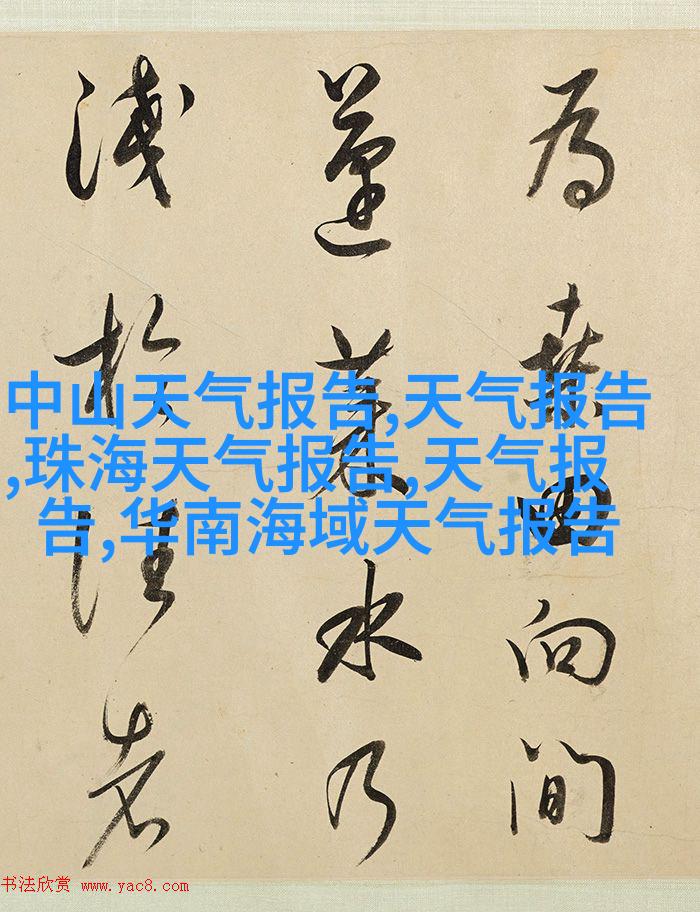 為桑田向間
蓬萊水乃
淺於往者
中山天气报告,天气报告
,珠海天气报告,天气报
告,华南海域天气报告
书法欣赏 www.yac8.com